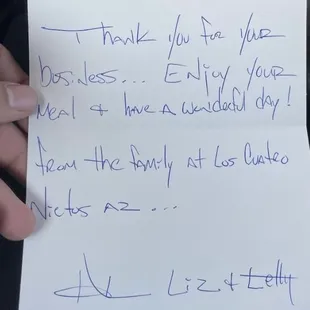 Thank you for your
business... Enjoy your
meal & have a wonderful day!
from the family at Los Cuatro
Nietos AZ ...
Liz & Letty